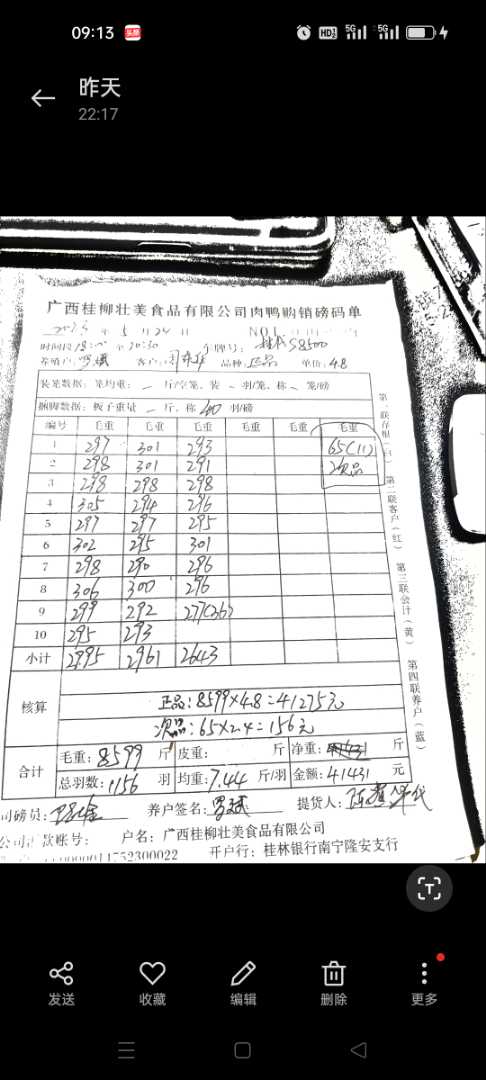 09:13 头条 HD 5G 5G
昨天
22:17
广西桂柳壮美食品有限公司肉鸭购销磅码单
5月24日
时间段 至20:30 58500
养殖户: 客户: 品种:正品 单价:4.8
装笼数据:笼均重: — 斤/空笼、装 — 羽/笼、称 — 笼/磅
捆脚数据:板子重量 — 斤、称 羽/磅
编号 毛重 毛重 毛重 毛重 毛重 毛重
1 297 301 293 65(11)
2 298 301 291 次品
3 298 298 298
4 305 294 296
5 297 297 295
6 302 295 301
7 298 290 296
8 306 300 296
9 299 292 277(36)
10 295 293
小计 2995 2961 2643
核算
正品:8599×4.8=41275元
次品:65×2.4=156元
合计 毛重:8599 斤 皮重: 斤 净重: 斤
总羽数:1156 羽 均重:7.444 斤/羽 金额:41431 元
司磅员: 养户签名: 提货人:
款账号: 户名:广西桂柳壮美食品有限公司
11752300022 开户行:桂林银行南宁隆安支行
第一联存根(白) 第二联客户(红) 第三联会计(黄) 第四联养户(蓝)
发送 收藏 编辑 删除 更多